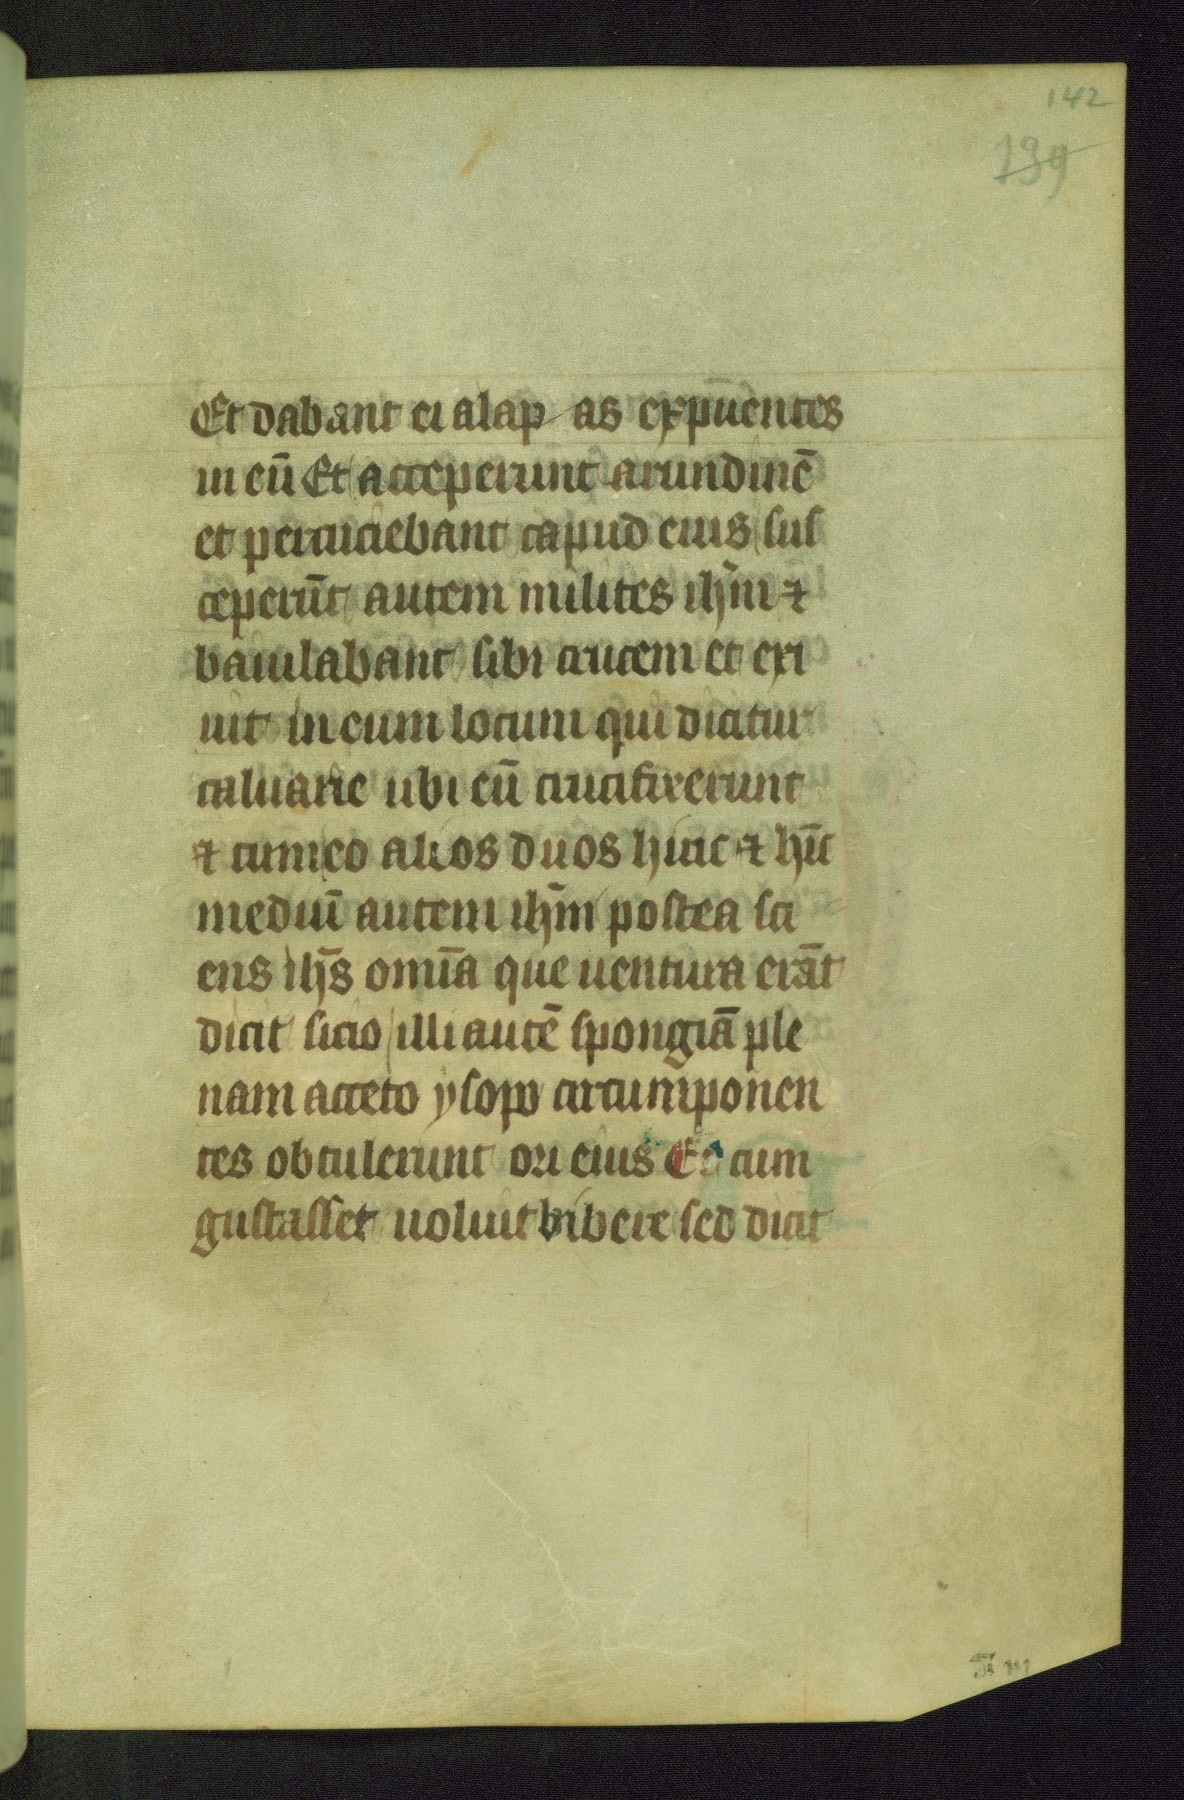 142
139
Et dabant ei alap as expuentes
in eū Et acceperunt arundinē
et percuciebant capud eius sus
ceperūt autem milites ihm̄ ⁊
baiulabant sibi crucem et exi
uit in eum locum qui dicitur
caluarie ubi eū crucifixerunt
⁊ cum eo alios duos hinc ⁊ hīc
mediū autem ihm̄ postea sci
ens ihs̄ omīa que uentura erāt
dicit sicio illi autē spongiā ple
nam acceto ysopo circumponen
tes obtulerunt ori eius Et cum
gustasset noluit bibere sed dicit